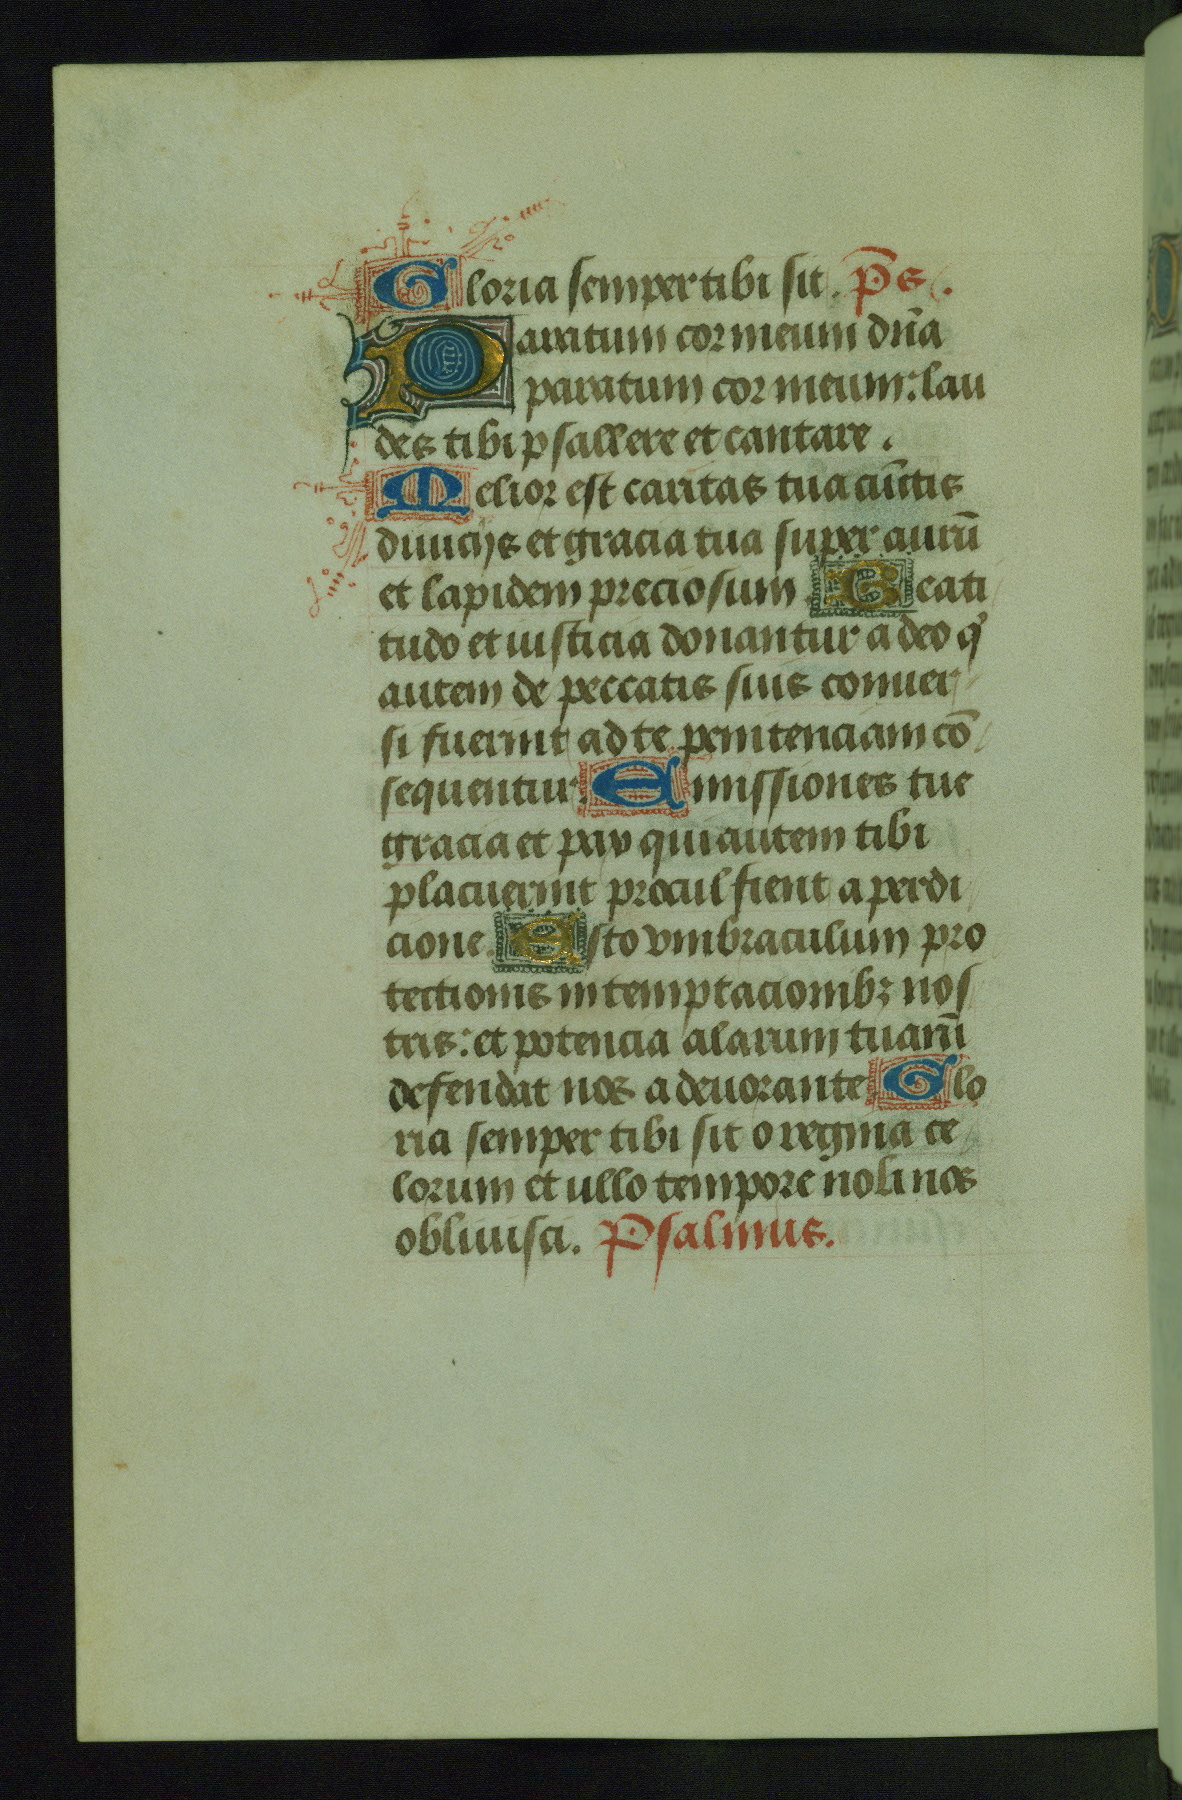 Gloria semper tibi sit. p̄s.
Paratum cor meum dn̄a
paratum cor meum: lau
des tibi psallere et cantare.
Melior est caritas tua cūctis
diuicijs et gracia tua super aurū
et lapidem preciosum. Beati
tudo et iusticia donantur a deo q'
autem de peccatis suis conuer
si fuerint ad te penitenciam cō
sequentur. Emissiones tue
gracia et pax qui autem tibi
placuerint procul fient a perdi
cione. Esto vmbraculum pro
tectionis in temptacionibꝫ nos
tris: et potencia alarum tuarū
defendat nos a deuorante. Glo
ria semper tibi sit o regina ce
lorum et ullo tempore noli nos
obliuisci. Psalmus.